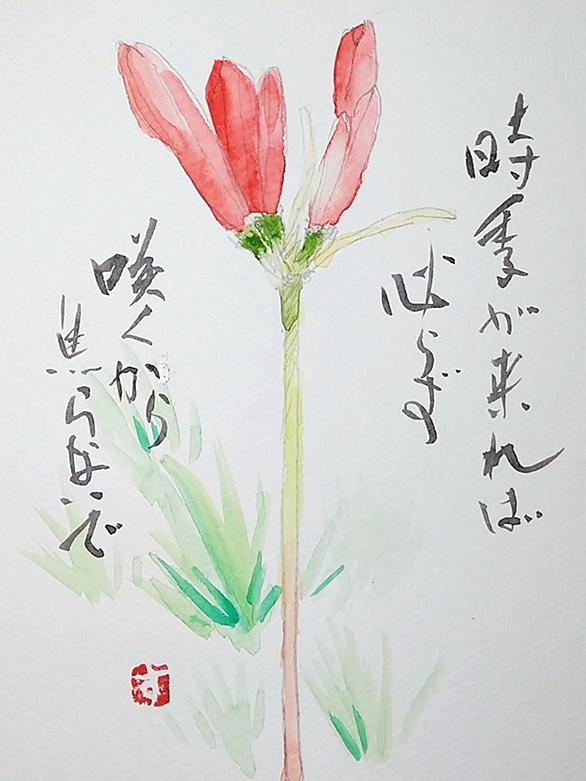 時季が来れば
必らず
咲くから
焦らないで